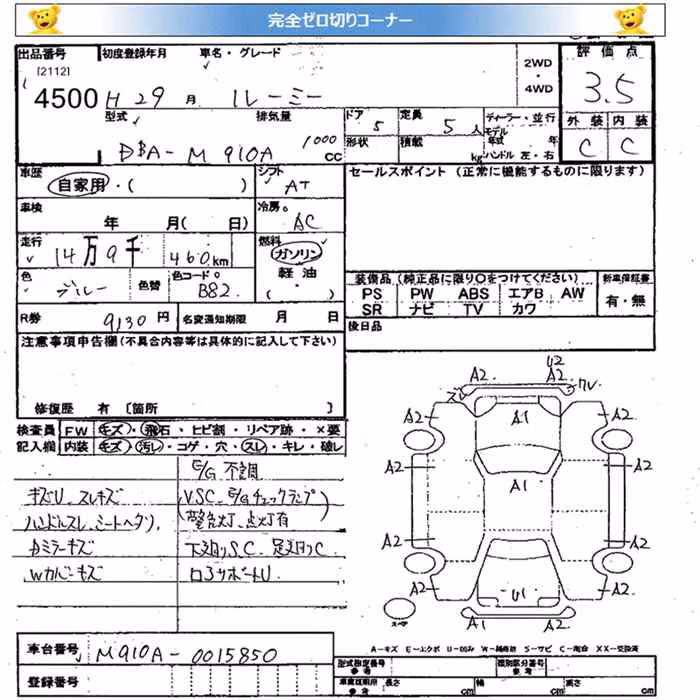 完全ゼロ切りコーナー
出品番号 初度登録年月 車名・グレード 2WD・4WD 評価点
[2112]
4500 H 29 月 ルーミー 3.5
型式 排気量 ドア 5 定員 5人 ディーラー・並行 外装 内装
DBA-M910A 1000 cc 形状 積載 kg モデル年式 年 ハンドル 左・右 C C
車歴 自家用・( ) シフト AT セールスポイント (正常に機能するものに限ります)
車検 年 月( 日) 冷房 AC
走行 14万9千460km 燃料 ガソリン・軽油・( )
色 ブルー 色替 色コードNo. B82 装備品 (純正品に限り○をつけてください) 新車保証書
PS PW ABS エアB AW 有・無
SR ナビ TV カワ
R券 9130円 名変通知期限 月 日 後日品
注意事項申告欄(不具合内容等は具体的に記入して下さい)
修復歴 有 〔箇所 〕
検査員 FW キズ・飛石・ヒビ割・リペア跡・×要
記入欄 内装 キズ・汚レ・コゲ・穴・スレ・キレ・破レ
E/G 不調
キズU、スレキズ VSC、E/Gチェックランプ
ハンドルスレ、シートヘタリ (警告灯、点灯有)
Dミラーキズ 下廻りS、C、足廻りC
Wカバーキズ ロアサポートU
U2
A2 A2
A1
A2 A2
A2 A2
A1
A2 A2
A2 A2
U1
A1 A2
スペア
車台番号 M910A-0015850
登録番号
A-キズ E-エクボ U-凹み W-補修跡 S-サビ C-腐蝕 XX-交換済
型式指定番号 類別区分番号
長さ cm 幅 cm 高さ cm